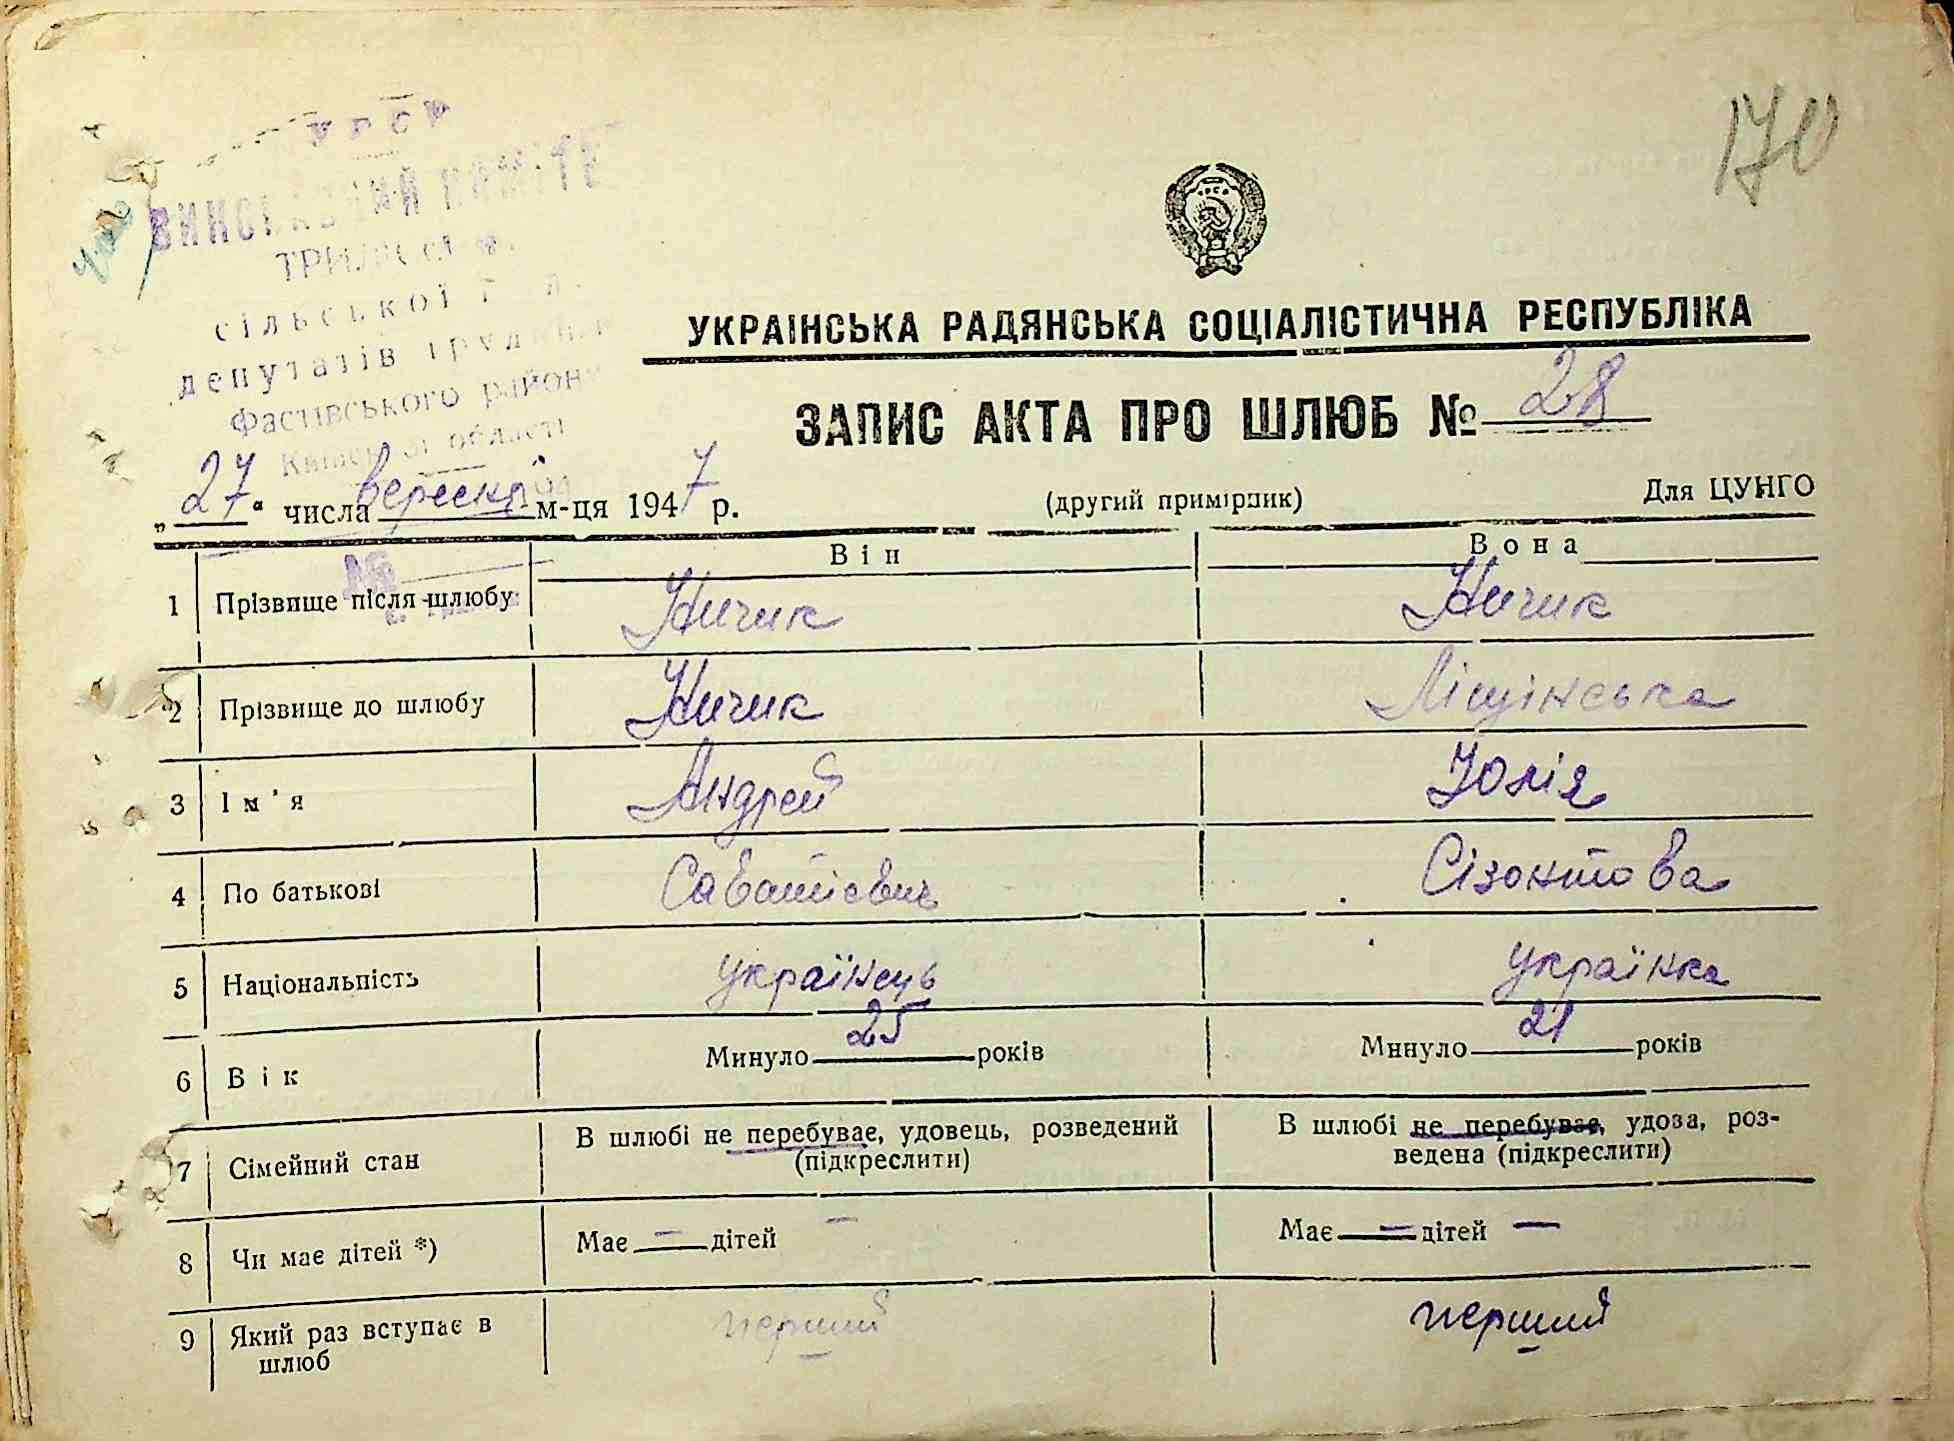 170
УРСР
ВИКОНАВЧИЙ КОМІТЕТ
сільської
депутатів трудящих
Фастівського району
Київської області
УКРАЇНСЬКА РАДЯНСЬКА СОЦІАЛІСТИЧНА РЕСПУБЛІКА
ЗАПИС АКТА ПРО ШЛЮБ № 28
„27“ числа вересня м-ця 1947 р. (другий примірник) Для ЦУНГО
Він Вона
1 Прізвище після шлюбу Ничик Ничик
2 Прізвище до шлюбу Ничик Ліщінська
3 Ім'я Андрей Юлія
4 По батькові Саватієвич Сізонтова
5 Національність українець українка
6 Вік Минуло 25 років Минуло 21 років
7 Сімейний стан В шлюбі не перебуває, удовець, розведений (підкреслити) В шлюбі не перебуває, удова, роз-
ведена (підкреслити)
8 Чи має дітей *) Має — дітей — Має — дітей —
9 Який раз вступає в шлюб перший перший